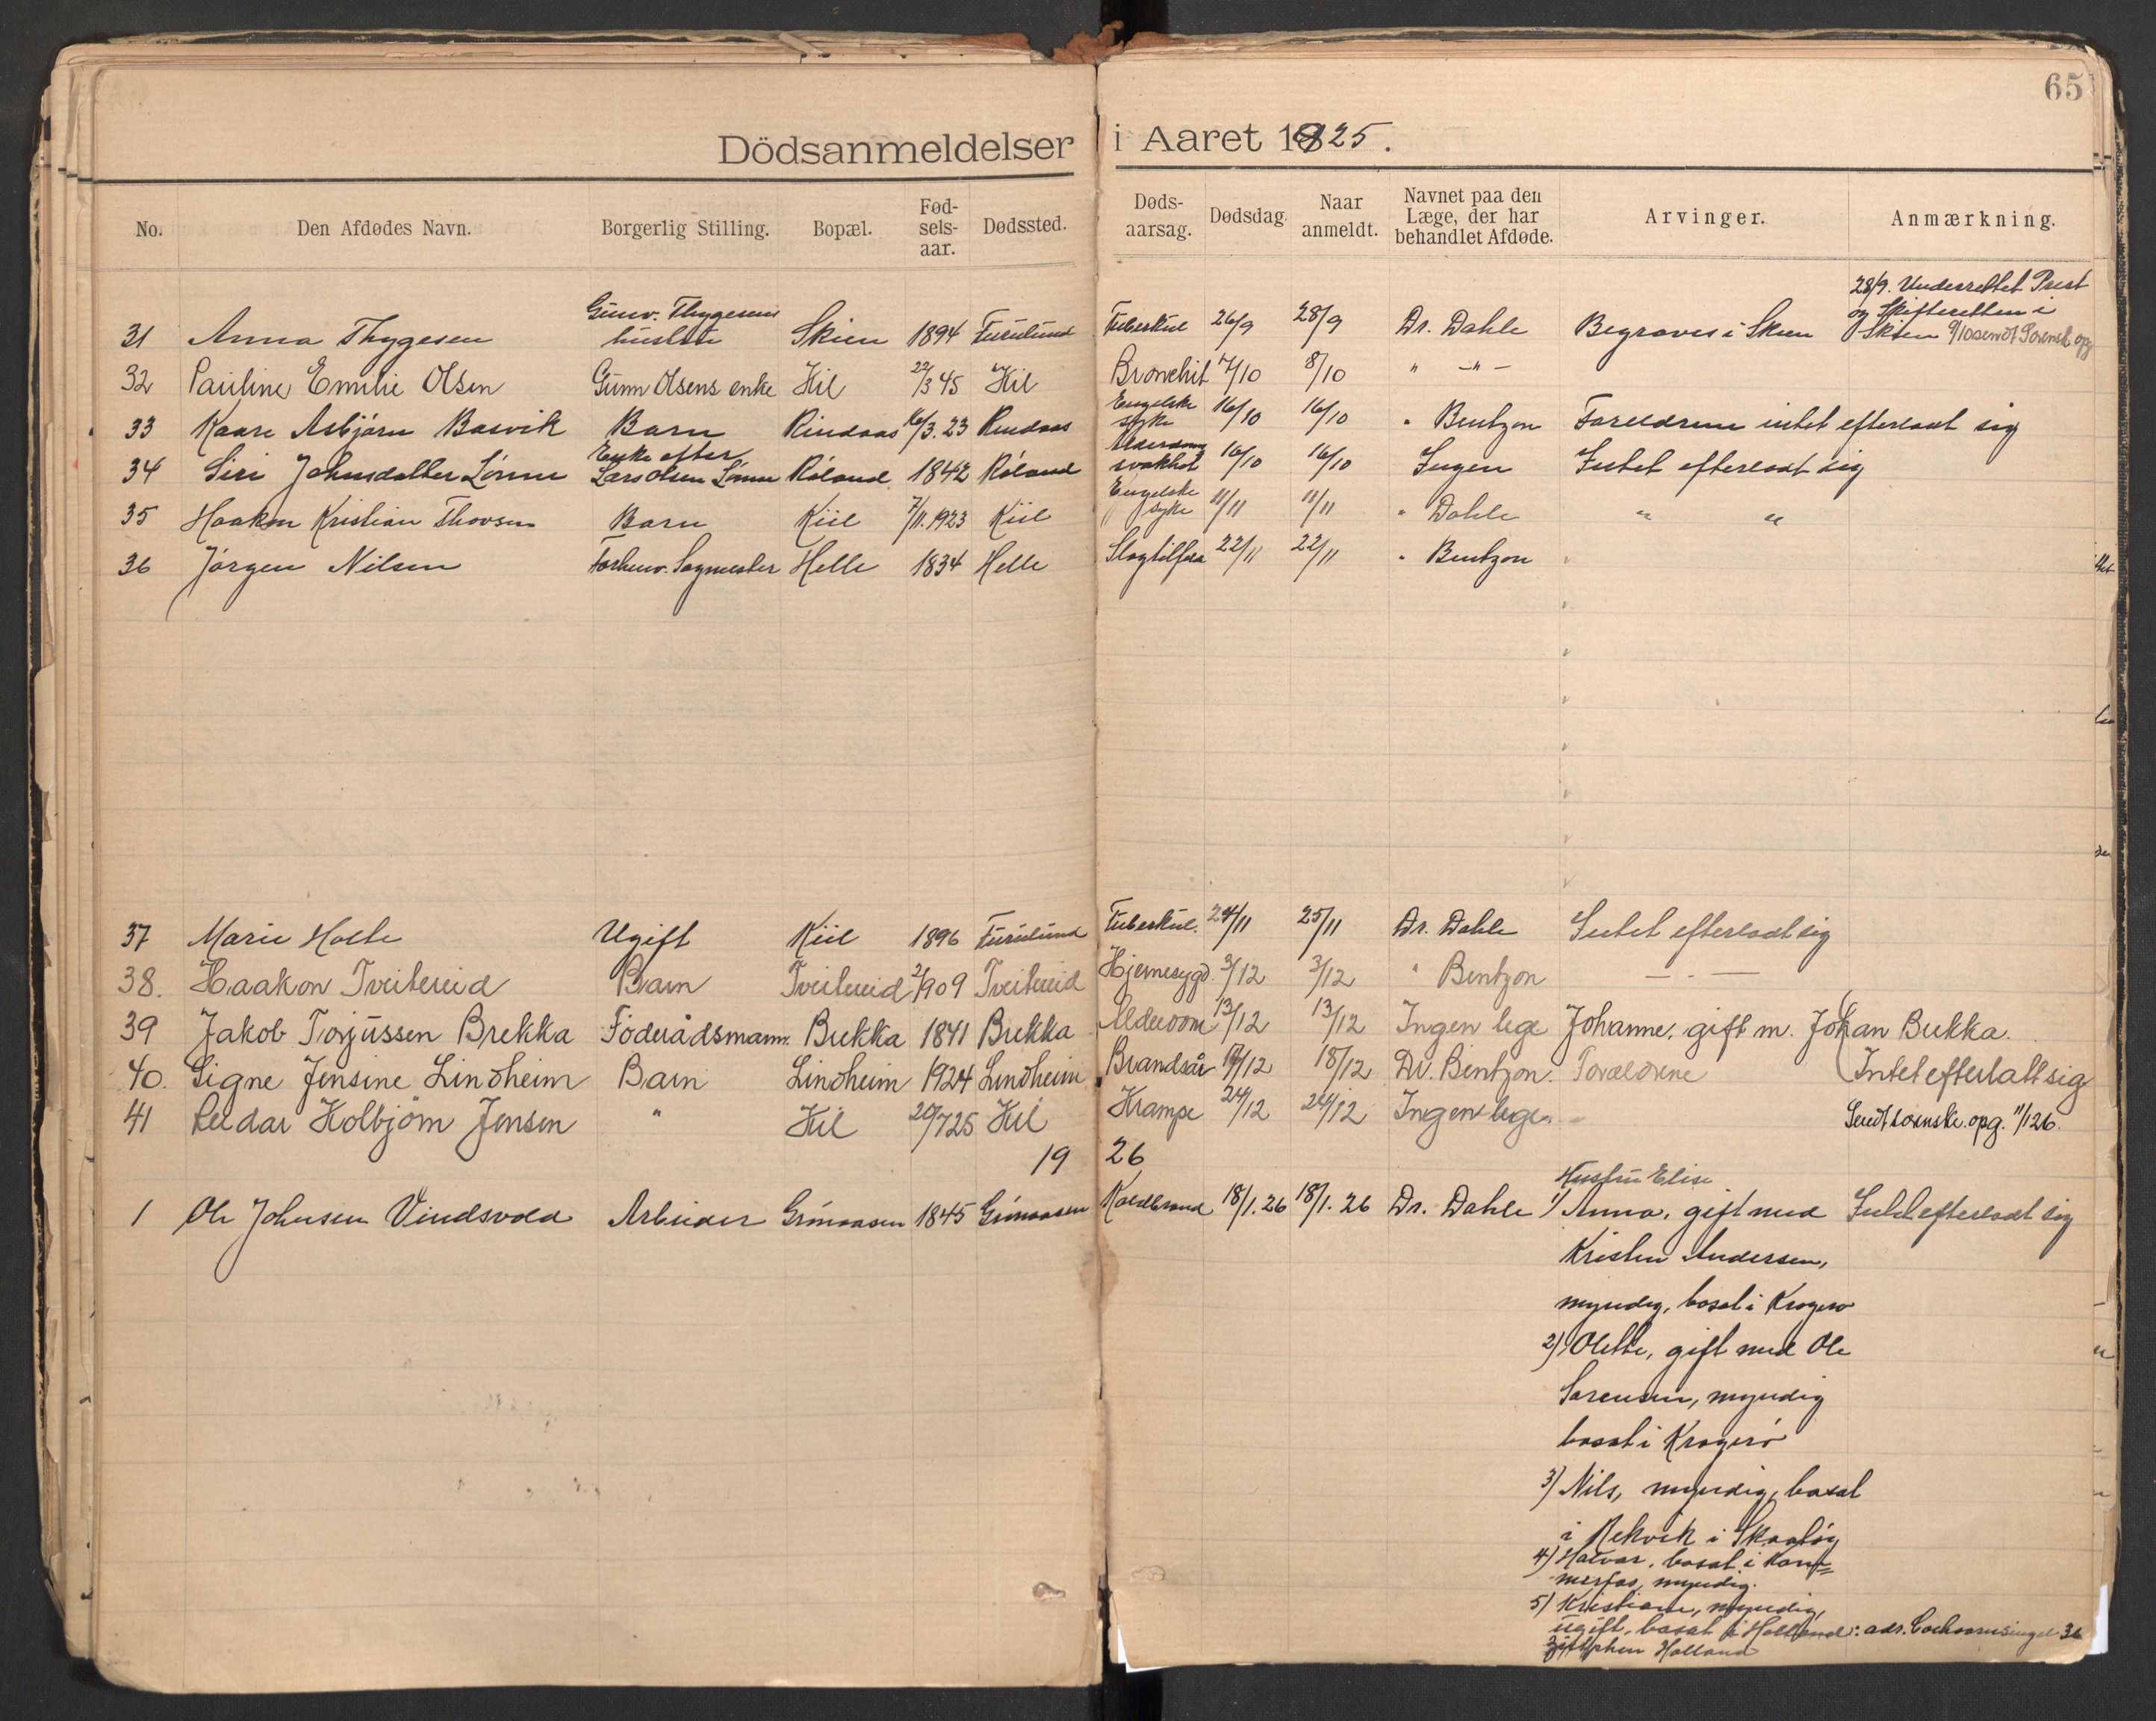 65
Dödsanmeldelser i Aaret 1925.
No. Den Afdødes Navn. Borgerlig Stilling. Bopæl. Fød-sels-aar. Dødssted. Døds-aarsag. Dødsdag. Naar anmeldt. Navnet paa den Læge, der har behandlet Afdøde. Arvinger. Anmærkning.
28/9. Underrettet Prest
Gunv. Thygesens og Skifteretten i
31 Anna Thygesen hustru Skien 1894 Furulund Tuberkul 26/9 28/9 Dr. Dahle Begraves i Skien Skien 9/10 sendt Sorensk. opg
32 Pauline Emilie Olsen Gunn Olsens enke Kil 22/3 45 Kil Bronchit 7/10 8/10 " -"-
33 Kaare Asbjørn Basvik Barn Rindaas 16/3.23 Rindaas Engelske syke 16/10 16/10 " Bentzon Foreldrene intet efterladt sig
34 Siri Johnsdatter Lønne Enke efter Lars Olsen Lønne Røland 1842 Røland Alderdoms svakhet 16/10 16/10 Ingen Intet efterladt sig
35 Haakon Kristian Thovsen Barn Kiil 7/11.1923 Kiil Engelske syke 11/11 11/11 " Dahle " "
36 Jørgen Nilsen Forhenv. Sagmester Helle 1834 Helle Slagtilfæ 22/11 22/11 " Bentzon
37 Marie Holte Ugift Kiil 1896 Furulund Tuberkul. 24/11 25/11 Dr. Dahle Intet efterladt sig
38. Haakon Tveitereid Barn Tveitereid 2/1909 Tveitereid Hjernesygd. 3/12 3/12 " Bentzon — · —
39 Jakob Torjussen Brekka Föderådsmann. Brekka 1841 Brekka Alderdom 13/12 13/12 Ingen lege Johanne, gift m. Johan Brekka.
40. Signe Jensine Lindheim Barn Lindheim 1924 Lindheim Brandsår 17/12 18/12 Dr. Bentzon. Forældrene Intet efterlatt sig
41 Reidar Kolbjørn Jensen " Kil 20/7 25 Kil Krampe 24/12 24/12 Ingen lege. Sendt sorenskr. opg. 11/1 26.
19 26
Hustru Elise
1 Ole Johnsen Vindsvold Arbeider Grønaasen 1845 Grønaasen Koldbrand 18/1.26 18/1.26 Dr. Dahle 1/ Anna, gift med Intet efterladt sig
Kristen Andersen,
myndig, bosat i Kragerø
2) Olette, gift med Ole
Sørensen, myndig
bosat i Kragerø
3) Nils, myndig, bosat
i Rekvik i Skaatøy
4) Halvor, bosat i Kam=
merfos, myndig.
5) Kristiane, myndig,
ugift, bosat i Holland: adr. 36
Zütphen Holland